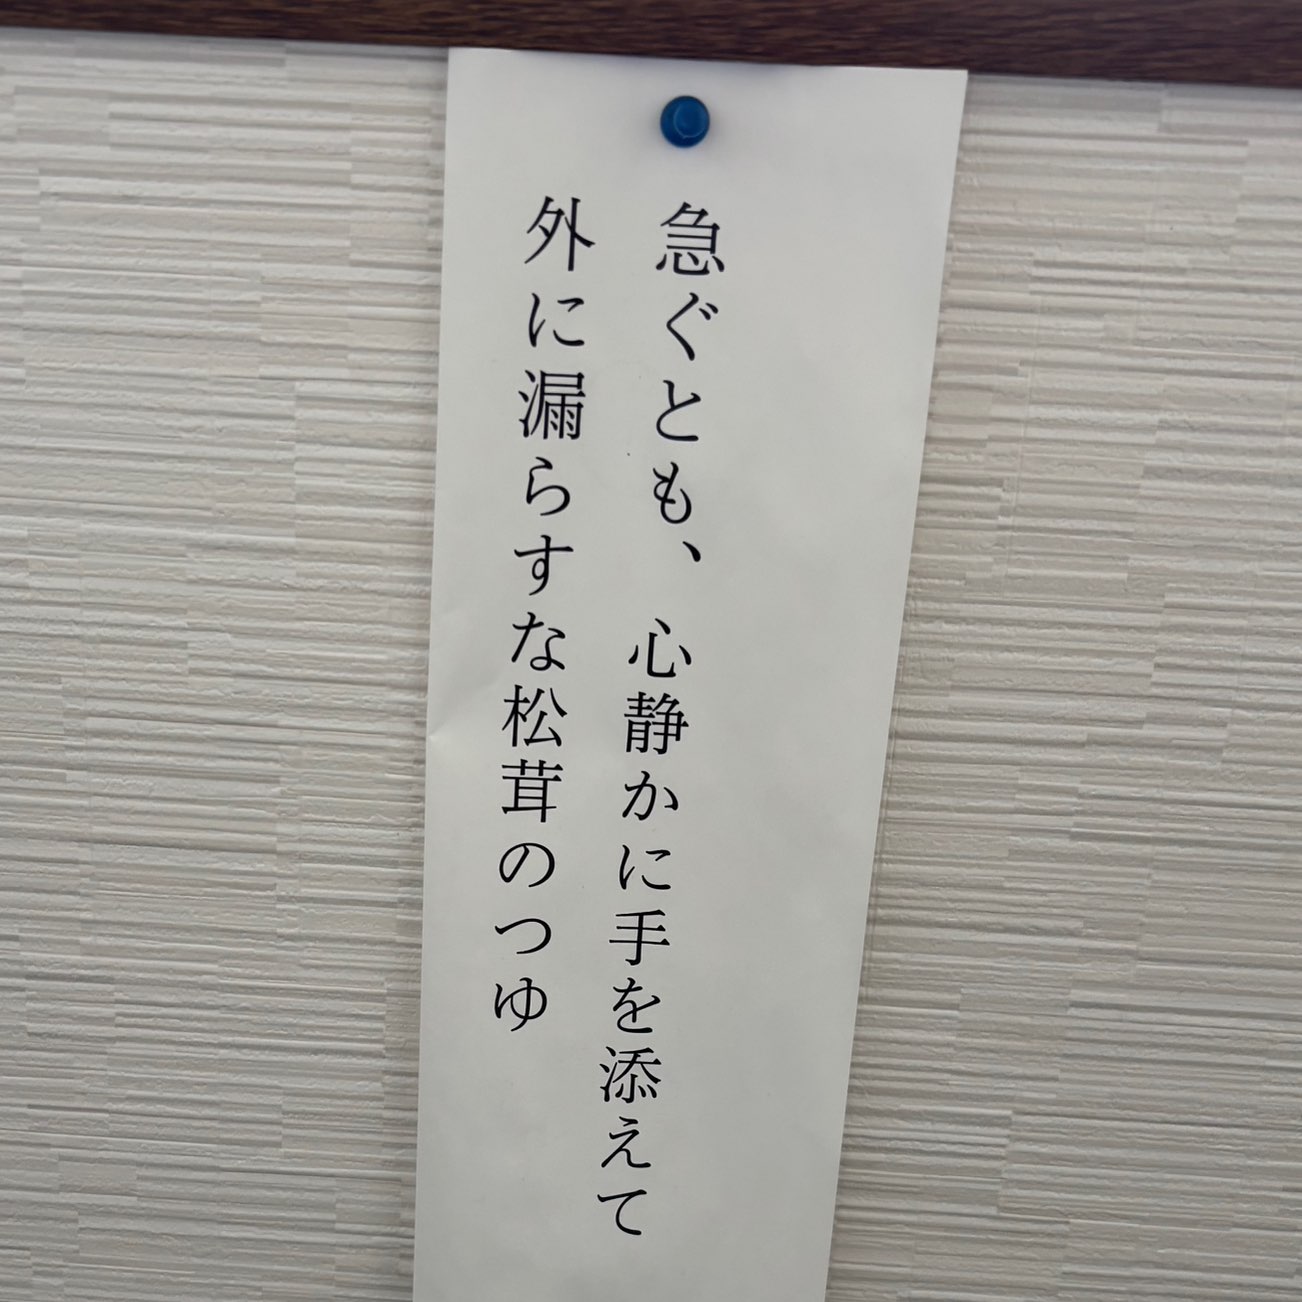 急ぐとも、心静かに手を添えて
外に漏らすな松茸のつゆ